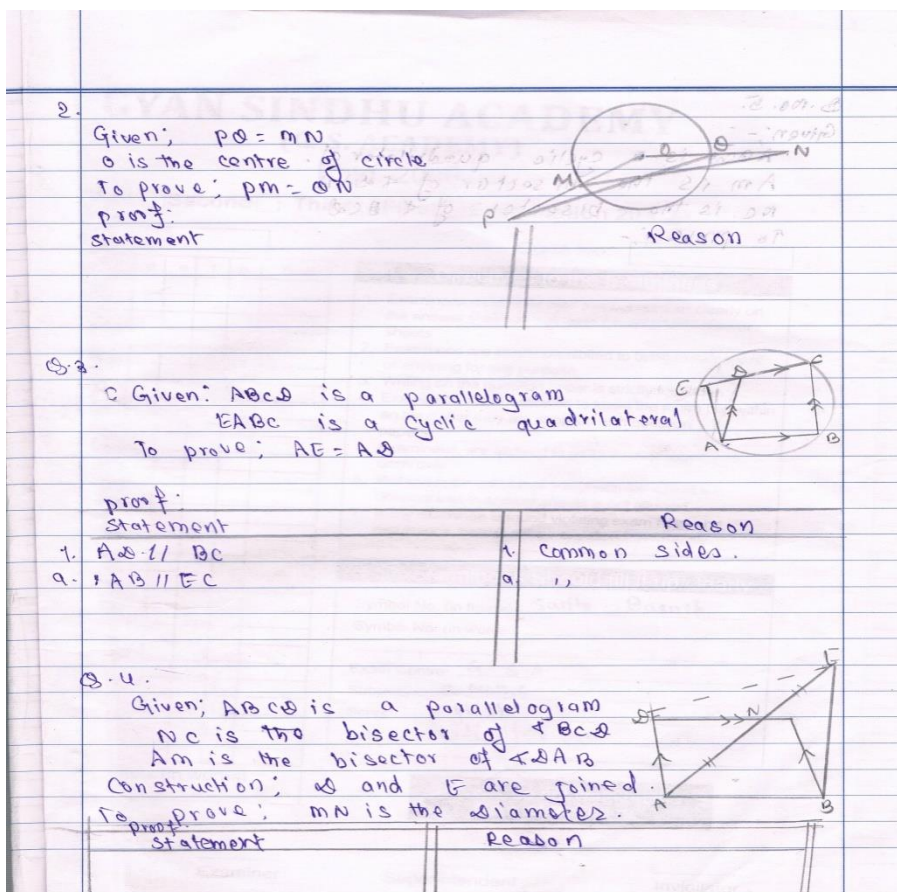 2.
Given; PQ = MN
O is the centre of circle
To prove; PM = QN
proof:
statement Reason
O Q N
M
P
Q.3.
C Given: ABCD is a parallelogram
EABC is a cyclic quadrilateral
To prove; AE = AD
E D C
A B
proof:
statement Reason
1. AD // BC 1. Common sides.
2. AB // EC 2. ,,
Q.4.
Given; ABCD is a parallelogram
NC is the bisector of ∠BCD
AM is the bisector of ∠DAB
Construction; D and E are joined.
To prove; MN is the Diameter.
E
N
A B
proof:
statement Reason